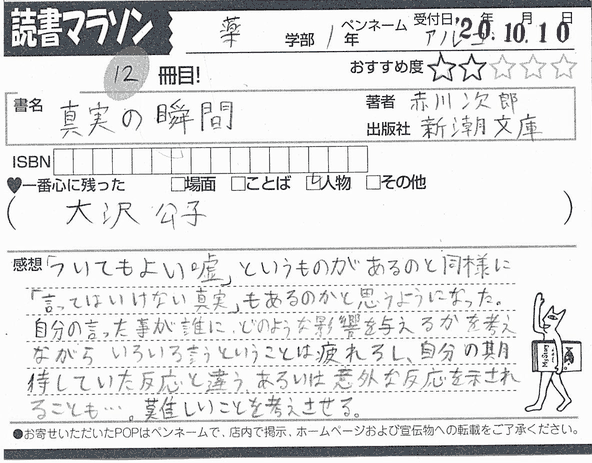 読書マラソン
薬 学部 1 年 ペンネーム アルー 受付日 '20.年10.月10日
12 冊目! おすすめ度 ☆☆☆☆☆
書名 真実の瞬間 著者 赤川次郎
出版社 新潮文庫
ISBN
♥一番心に残った □場面 □ことば □人物 □その他
( 大沢 公子 )
感想 「ついてもよい嘘」というものがあるのと同様に
「言ってはいけない真実」もあるのかと思うようになった。
自分の言った事が誰に、どのような影響を与えるかを考え
ながら いろいろ言うということは疲れるし、自分の期
待していた反応と違う、あるいは 意外な反応を示され
ることも…。難しいことを考えさせる。
●お寄せいただいたPOPはペンネームで、店内で掲示、ホームページおよび宣伝物への転載をご了承ください。